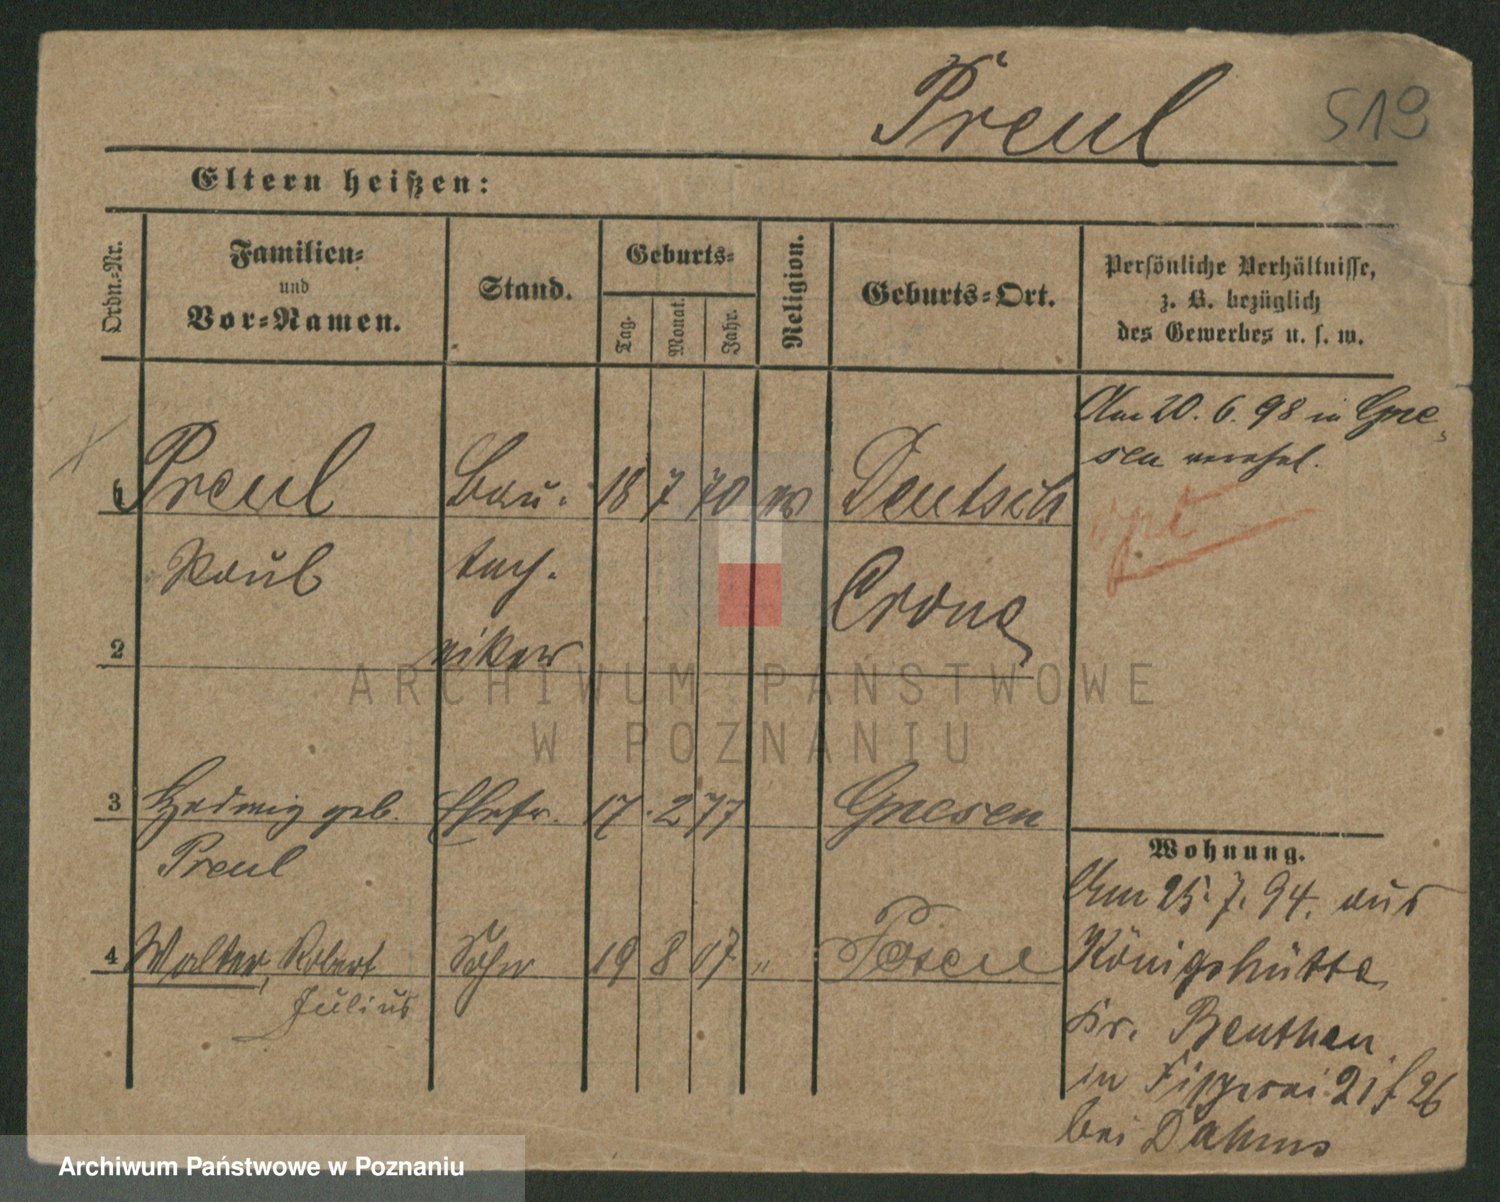 Preul 519
Eltern heißen:
Ordn.-Nr. Familien- und Vor-Namen. Stand. Geburts- Tag. Monat. Jahr. Religion. Geburts-Ort. Persönliche Verhältnisse, z. B. bezüglich des Gewerbes u. s. w.
Am 20. 6. 98 in Gne-
sen verehel.
1 Preul Bau- 18 7 70 Deutsch
Paul tech-
Crone
2 niker
3 Hedwig geb. Ehefr. 17. 2 77 Gnesen
Preul
4 Walter, Robert Sohn 19 8 07 " Posen
Julius
Wohnung.
Am 25. 7. 94. aus
Königshütte
Kr. Beuthen
in Fischerei 21 26
bei Dahms
ARCHIWUM PAŃSTWOWE
W POZNANIU
Archiwum Państwowe w Poznaniu